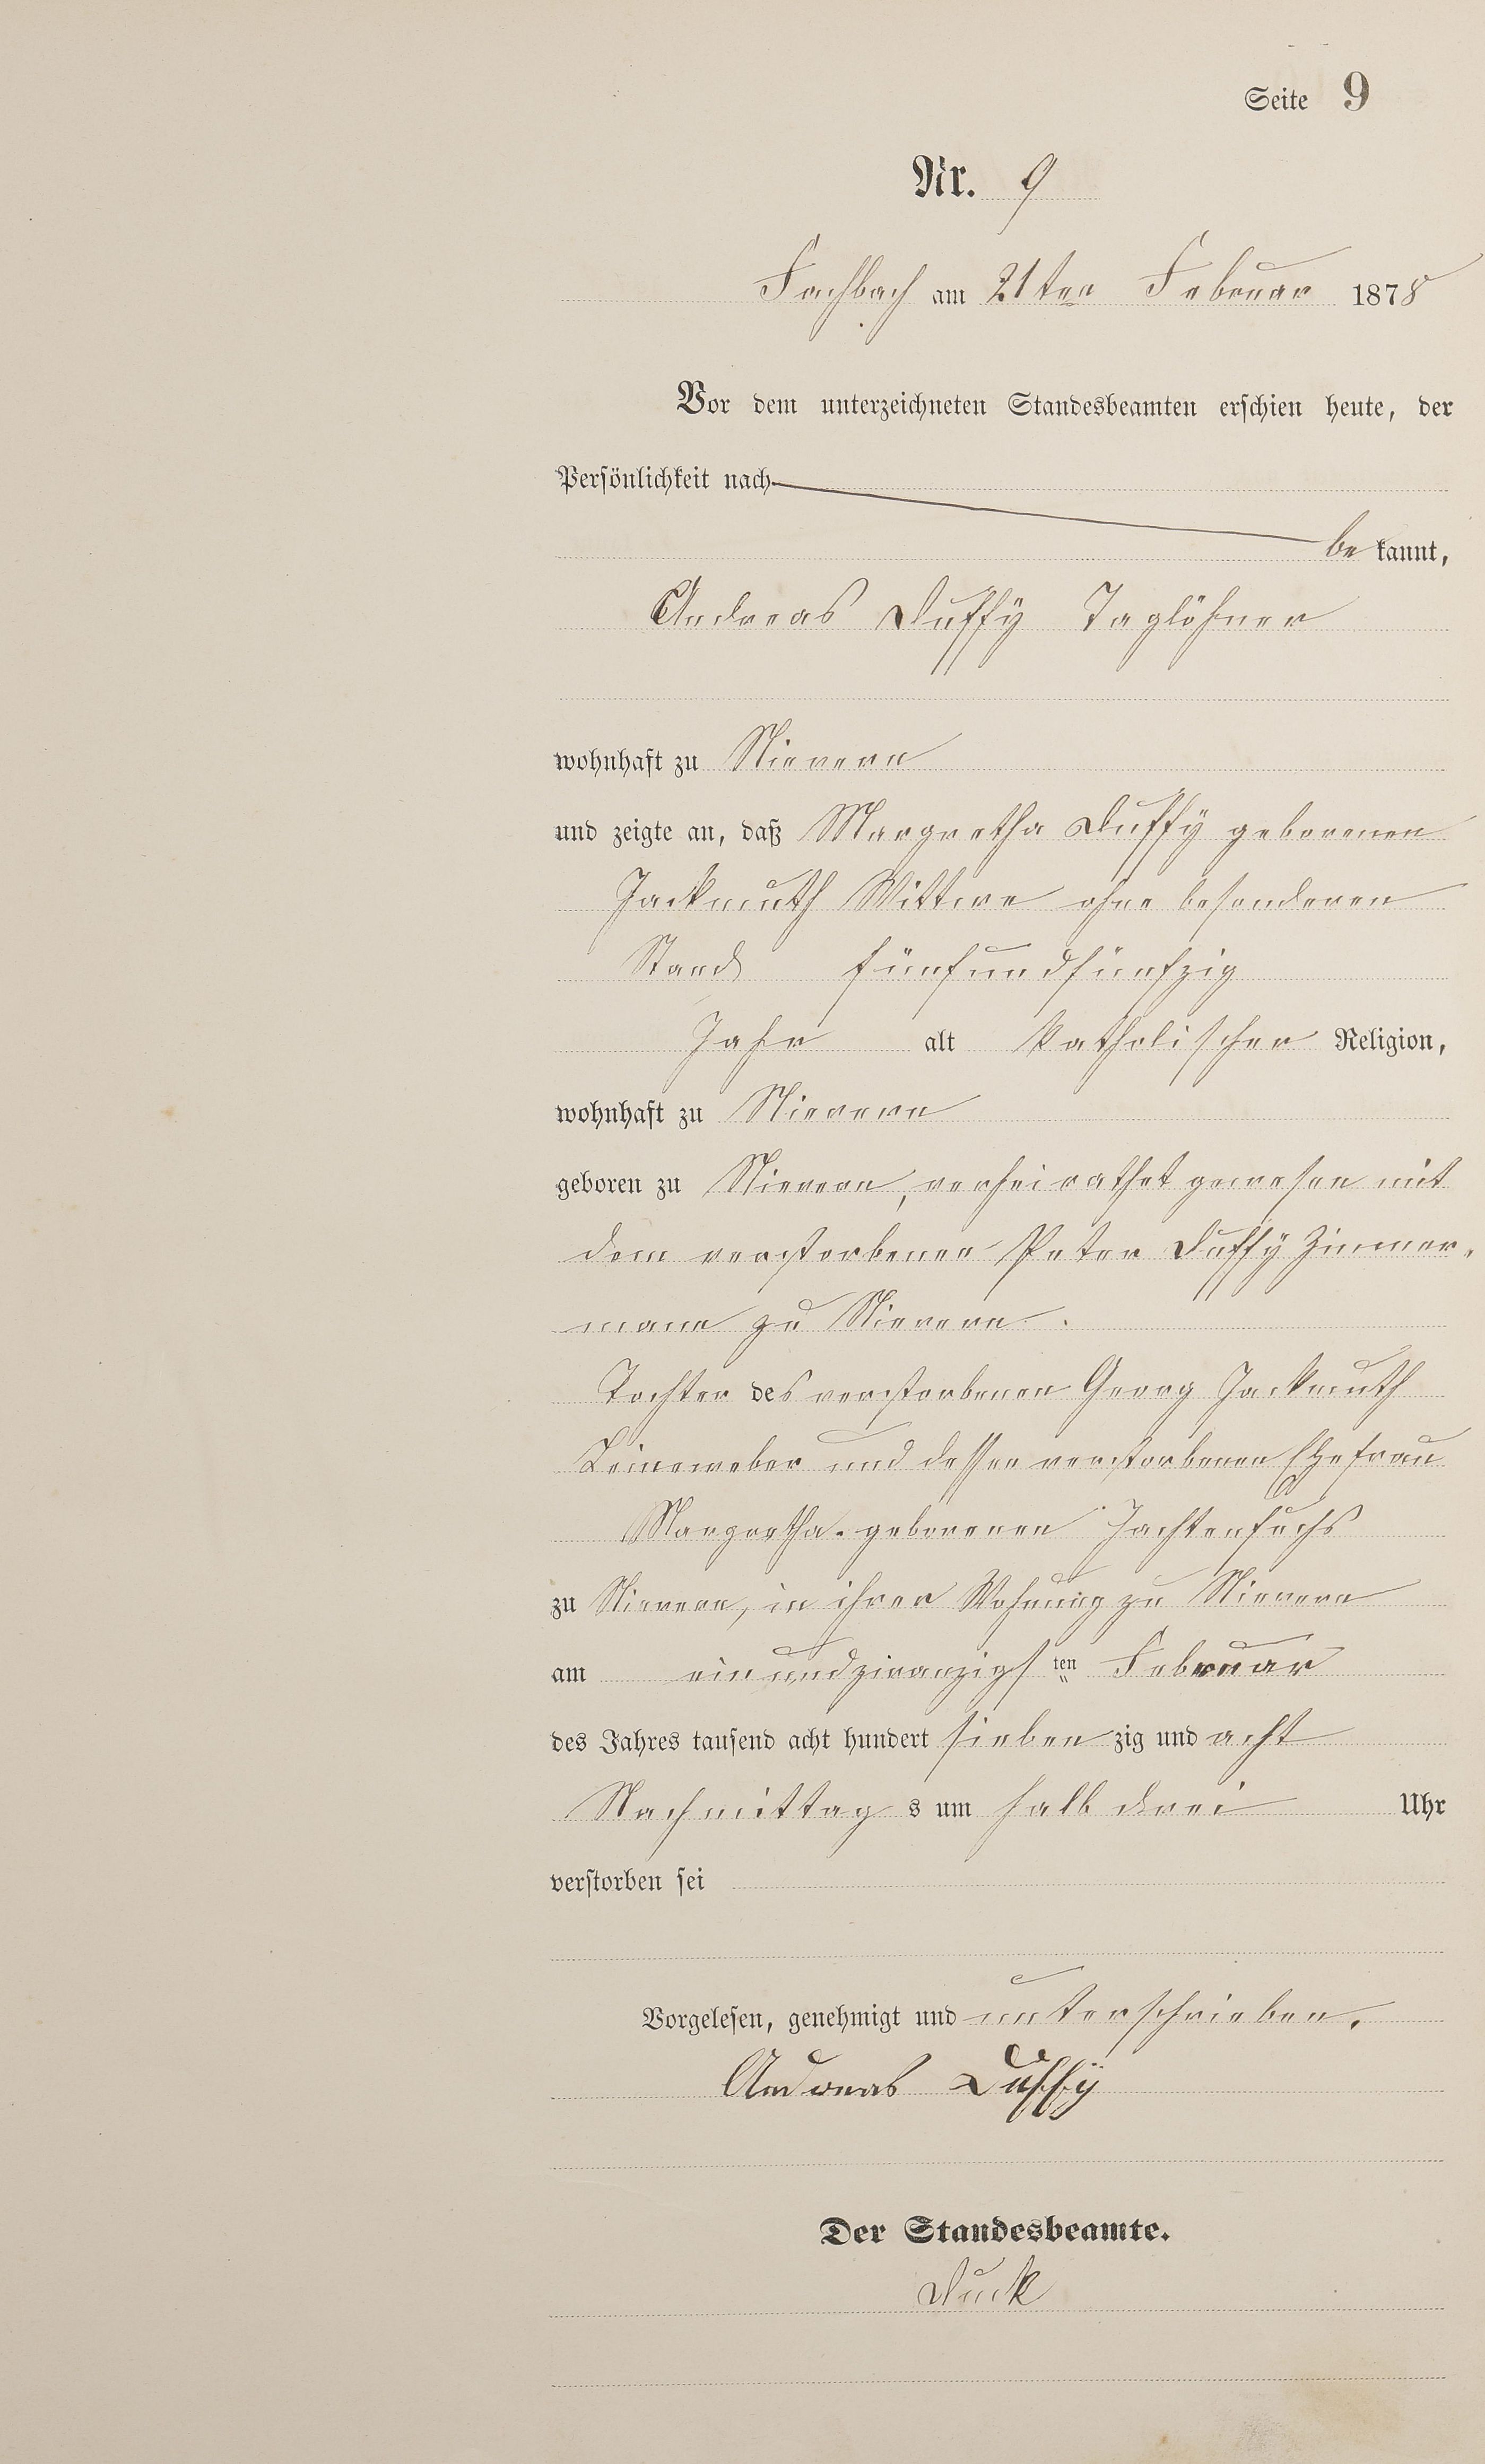 Seite 9
Nr. 9
Fachbach am 21ten Februar 1878
Vor dem unterzeichneten Standesbeamten erschien heute, der
Persönlichkeit nach
be kannt,
Andreas Duffÿ Taglöhner
wohnhaft zu Nievern
und zeigte an, daß Margretha Duffÿ geborenen
Jackmuth Wittwe ohne besonderen
Stand fünfundfünfzig
Jahr alt katholischer Religion,
wohnhaft zu Nievern
geboren zu Nievern, verheirathet gewesen mit
dem verstorbenen Peter Duffÿ Zimmer-
mann zu Nievern.
Tochter des verstorbenen Georg Jackmuth
Leineweber und dessen verstorbenen Ehefrau
Margretha geborenen Jachtenfuchs
zu Nievern, in ihrer Wohnung zu Nievern
am einundzwanzigsten Februar
des Jahres tausend acht hundert sieben zig und acht
Nachmittag s um halb drei Uhr
verstorben sei
Vorgelesen, genehmigt und unterschrieben.
Andreas Duffÿ
Der Standesbeamte.
Duck